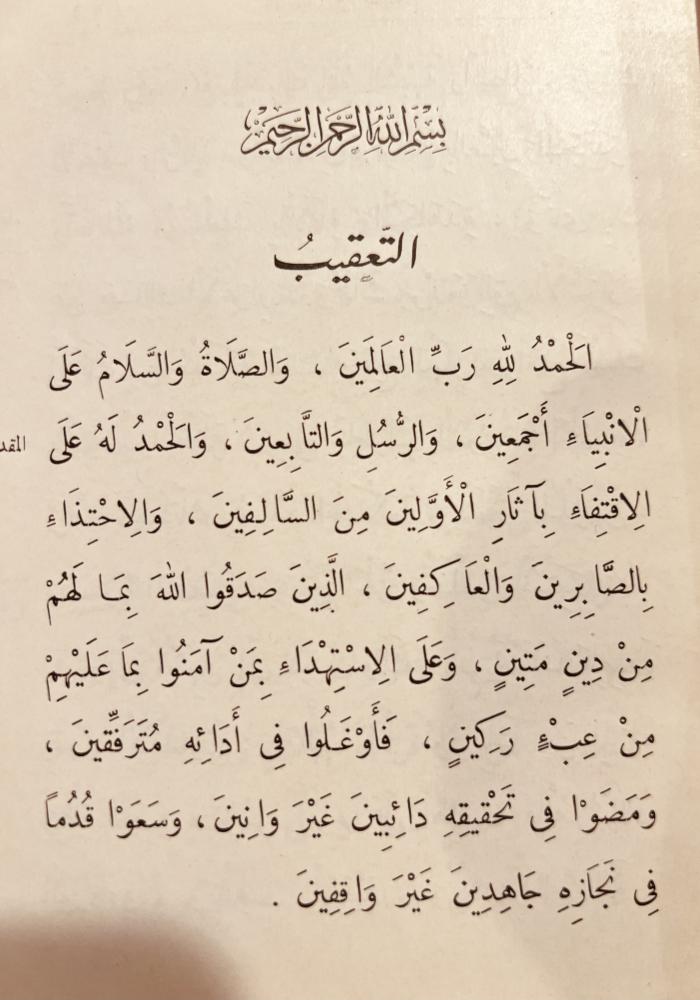 بِسْمِ اللهِ الرَّحْمٰنِ الرَّحِيمِ
التَّعْقِيبُ
الْحَمْدُ لِلّٰهِ رَبِّ الْعَالَمِينَ ، وَالصَّلَاةُ وَالسَّلَامُ عَلَى
الْانْبِيَاءِ أَجْمَعِينَ ، وَالرُّسُلِ وَالتَّابِعِينَ ، وَالْحَمْدُ لَهُ عَلَى
الِاقْتِفَاءِ بِآثَارِ الْأَوَّلِينَ مِنَ السَّالِفِينَ ، وَالِاحْتِذَاءِ
بِالصَّابِرِينَ وَالْعَاكِفِينَ ، الَّذِينَ صَدَقُوا اللهَ بِمَا لَهُمْ
مِنْ دِينٍ مَتِينٍ ، وَعَلَى الِاسْتِهْدَاءِ بِمَنْ آمَنُوا بِمَا عَلَيْهِمْ
مِنْ عِبْءٍ رَكِينٍ ، فَأَوْغَلُوا فِي أَدَائِهِ مُتَرَفِّقِينَ ،
وَمَضَوْا فِي تَحْقِيقِهِ دَائِبِينَ غَيْرَ وَانِينَ ، وَسَعَوْا قُدُماً
فِي نَجَازِهِ جَاهِدِينَ غَيْرَ وَاقِفِينَ .